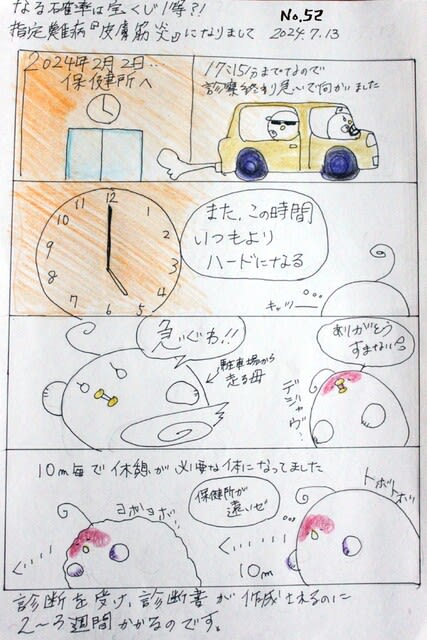 なる確率は宝くじ1等?!
No.52
指定難病『皮膚筋炎』になりまして 2024.7.13
2024年2月2日…
保健所へ
17:15分までなので
診察終わり急いで向かいました
12
1
2
3
4
5
6
7
8
9
10
11
また、この時間
いつもより
ハードになる
キャッツー
急ぐわ!!
駐車場から
走る母
ありがとう
すまない
デジャヴ…
10m毎で休憩が必要な体になってました
ヨボヨボ
保健所が
遠いぜ
トボトボ
10m
診断を受け、診断書が作成されるのに
2~3週間かかるのです。